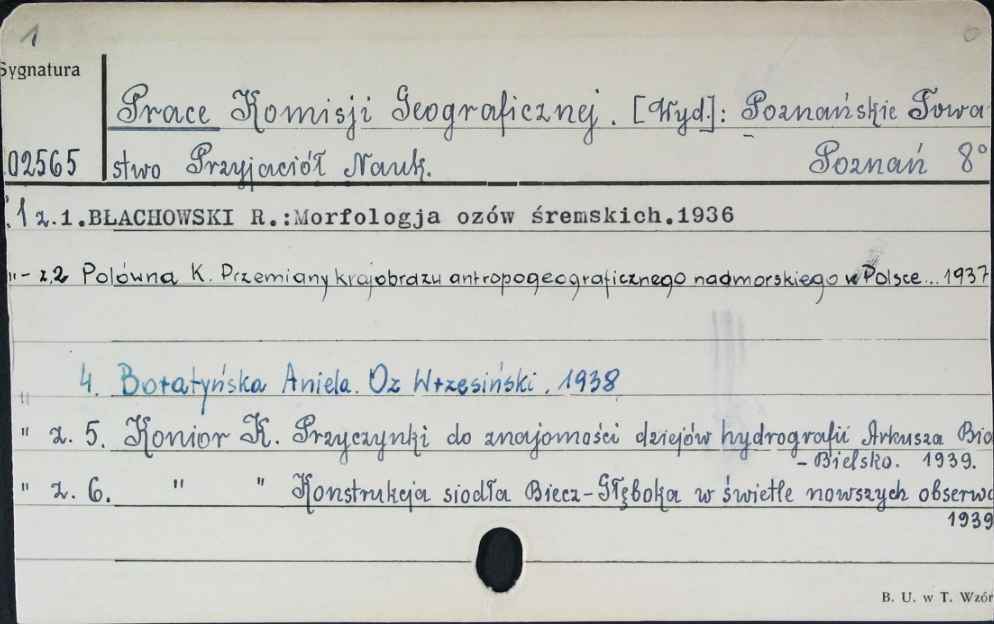 1
Sygnatura
Prace Komisji Geograficznej. [Wyd.]: Poznańskie Towa-
02565 stwo Przyjaciół Nauk. Poznań 8°
1 z.1.BŁACHOWSKI R.:Morfologja ozów śremskich.1936
"- z.2 Polówna K. Przemiany krajobrazu antropogeograficznego nadmorskiego w Polsce... 1937
4. Boratyńska Aniela. Oz Wrzesiński. 1938
" z. 5. Konior K. Przyczynki do znajomości dziejów hydrografii Arkusza Bia
- Bielsko. 1939.
" z. 6. " " Konstrukcja siodła Biecz-Głęboka w świetle nowszych obserwa
1939
B. U. w T. Wzór